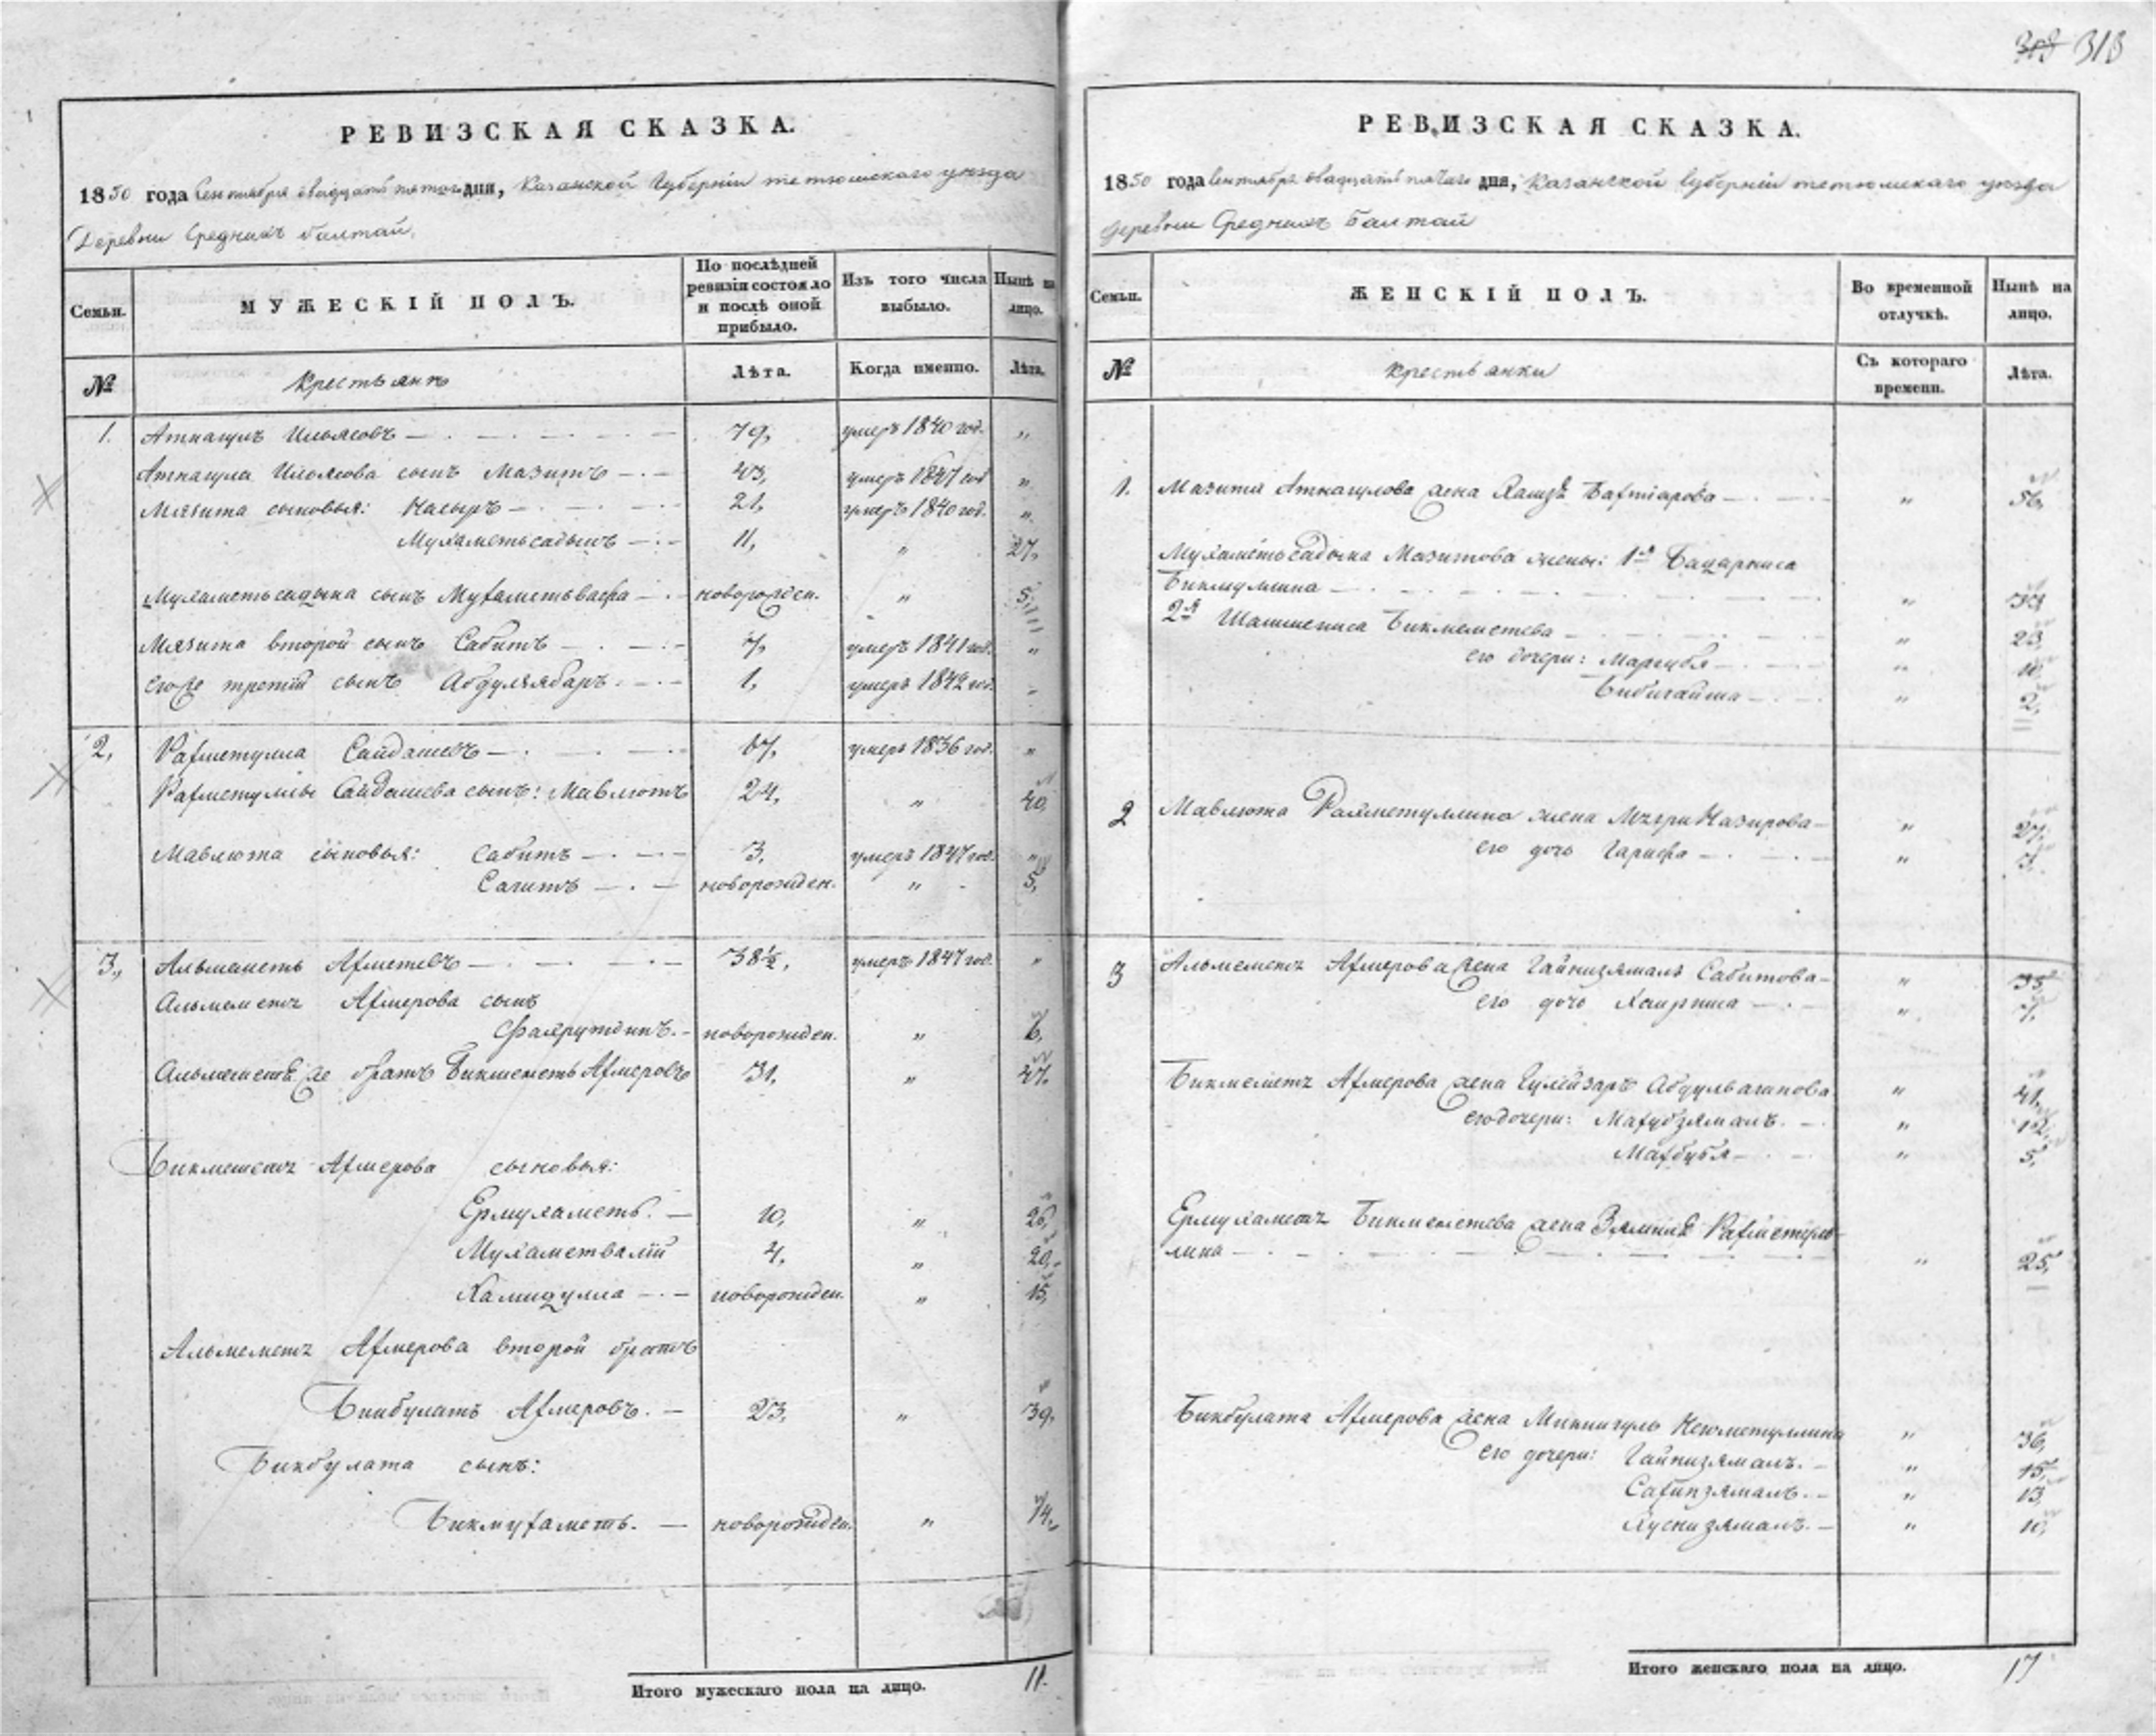 313
РЕВИЗСКАЯ СКАЗКА.
1850 года Сентября двадцать пятого дня, Казанской Губернии тетюшскаго уезда
Деревни Средних балтай.
Семьи.
МУЖЕСКІЙ ПОЛЪ.
По послѣдней ревизіи состояло и послѣ оной прибыло.
Изъ того числа выбыло.
Нынѣ на лицо.
№
крестьянъ
Лѣта.
Когда именно.
Лѣта.
1. Атнагулъ Ильясовъ 79, умеръ 1840 год. „
Атнагула Ильясова сынъ Мазитъ 43, умеръ 1847 год „
Мязита сыновья: Насыръ 21, умеръ 1840 год. „
Мухаметьсадыкъ 11, „ 27,
Мухаметьсадыка сынъ Мухаметьвафа новорожден. „ 5,
Мязита второй сынъ Сабитъ 7, умеръ 1841 год. „
егоже третій сынъ Абдулзябаръ 1, умеръ 1842 год. „
2, Рахметулла Сайдашевъ 67, умеръ 1836 год. „
Рахметуллы Сайдашева сынъ: Мавлютъ 24, „ 40,
Мавлюта сыновья: Сабитъ 3, умеръ 1847 год. „
Сагитъ новорожден. „ 5,
3, Альмаметь Ахметевъ 38½, умеръ 1847 год. „
Альмеметя Ахмерова сынъ
Фахрутдинъ. новорожден. „ 6,
Альмеметя же братъ Бикмеметь Ахмеровъ 31, „ 47,
Бикмеметя Ахмерова сыновья:
Ермухаметь. 10, „ 26,
Мухаметвалій 4, „ 20,
Хамидулла новорожден. „ 15,
Альмеметя Ахмерова второй братъ
Бикбулатъ Ахмеровъ. 23, „ 39,
Бикбулата сынъ:
Бикмухаметь. новорожден. „ 14,
Итого мужескаго пола на лицо. 11.
РЕВИЗСКАЯ СКАЗКА.
1850 года Сентября двадцать пятаго дня, Казанской Губерніи тетюшскаго уезда
деревни Среднихъ Балтай
Семьи.
ЖЕНСКІЙ ПОЛЪ.
Во временной отлучкѣ.
Нынѣ на лицо.
№
крестьянки
Съ котораго времени.
Лѣта.
1. Мазита Атнагулова жена Бахтіарова „ 56,
Мухаметьсадыка Мазитова жены: 1я Бадарниса
Бикмуллина „
2я Шамшениса Бикмеметева „ 23,
его дочери: Маргубя „ 10,
Бибигайша „ 2,
2 Мавлюта Рахметуллина жена Мягри Назирова „ 27,
его дочь Гарифа „ 3,
3 Альмеметя Ахмерова жена Гайнизямалъ Сабитова „ 35,
его дочь Хаирниса „ 7,
Бикмеметя Ахмерова жена Гулйзаръ Абдулвагапова „ 41,
его дочери: Махубзямалъ. „ 12,
Махбубя „ 5,
Ермухаметя Бикмеметева жена Рахметул
лина „ 25,
Бикбулата Ахмерова жена Миннигуль Неюметуллина „ 36,
его дочери: Гайнизямалъ. „ 15,
Сабипзямалъ. „ 13,
Хуснизямалъ. „ 10,
Итого женскаго пола на лицо. 17